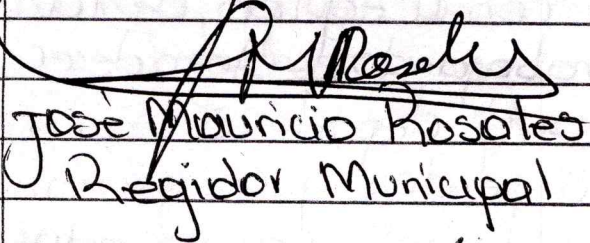 M Rosales
José Mauricio Rosales
Regidor Municipal